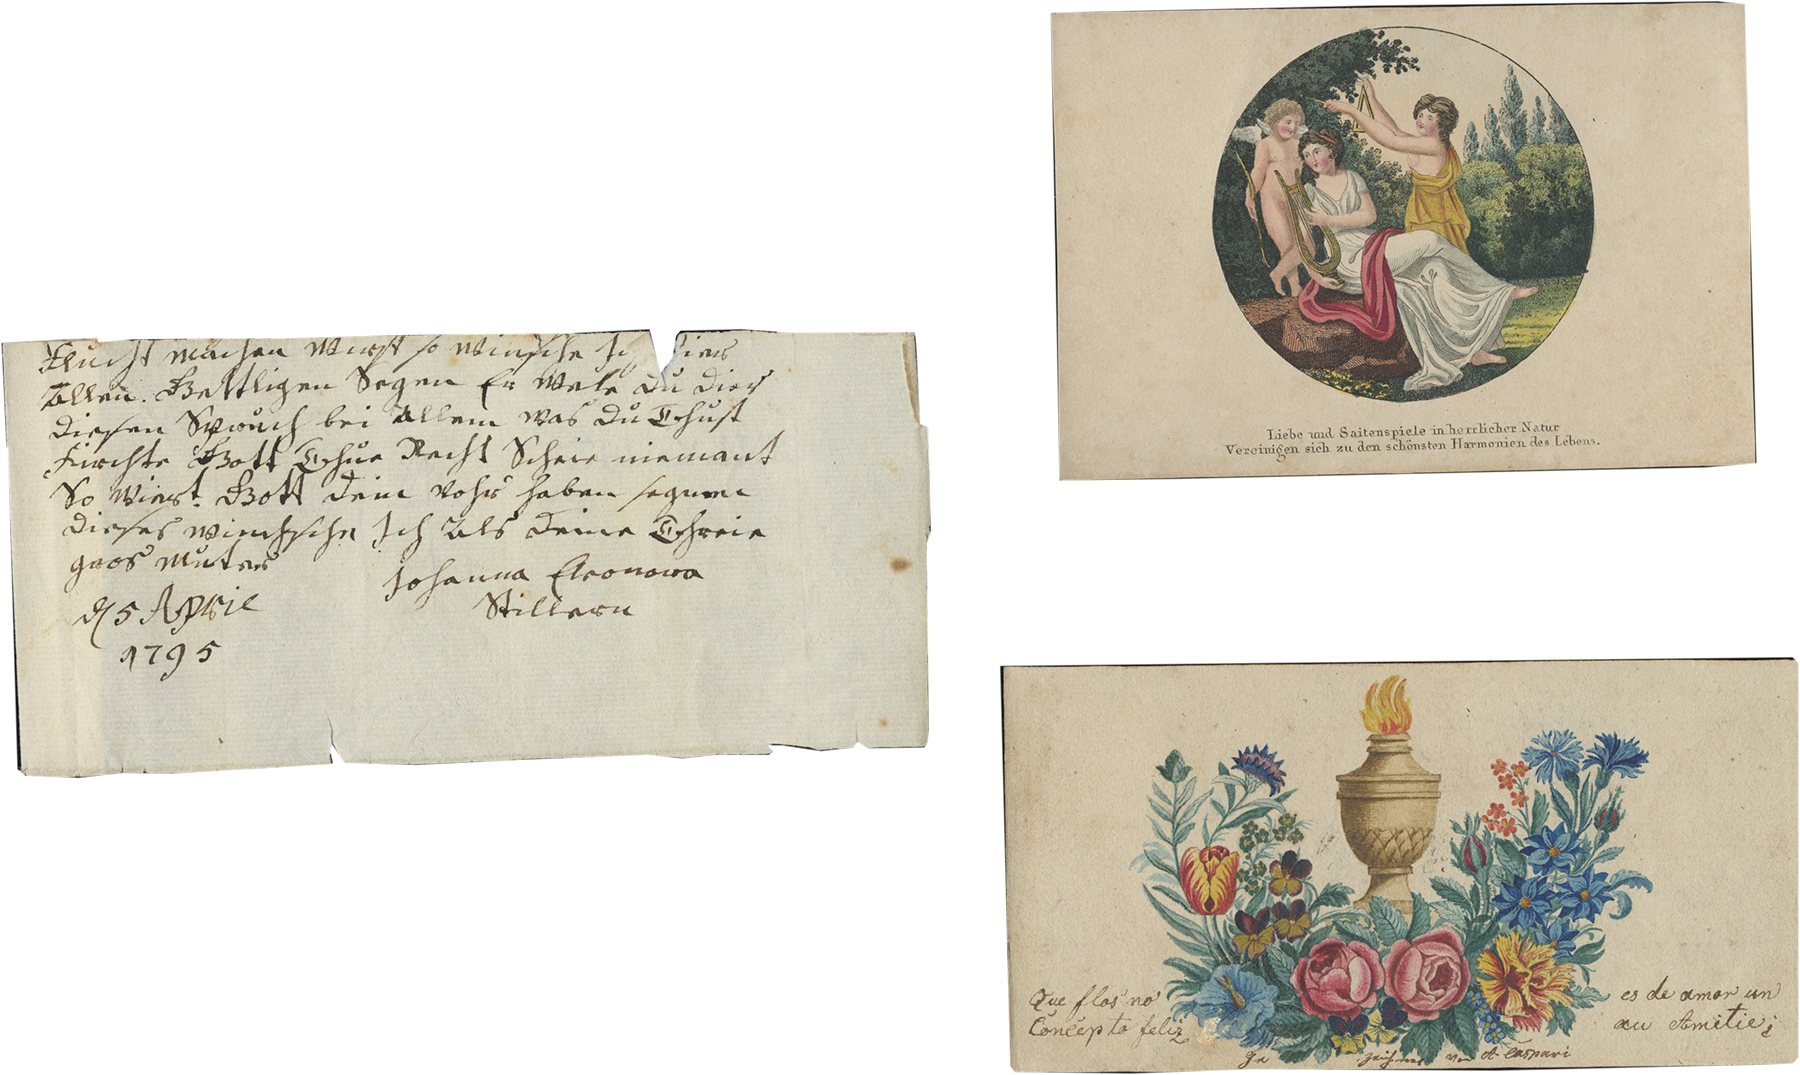 Flucht machen Wirst so Winsche Ich Dier
Allen Gettligen Segen Er Wele Du Dier
Diesen Spruch bei Allem Was Du Thust
Firchte Gott Thue Recht Scheie niemant
So Wiert Gott Dein Vohr haben segnen
Dieses Winchsche Ich Als Deine Threie
gros Muter
Johanna Eleonora
Stillern
d 5 Aprile
1795
Liebe und Saitenspiele in herrlicher Natur
Vereinigen sich zu den schönsten Harmonien des Lebens.
Que flos no es de amor un
Concepto feliz au Amitie;
Ge zeichnet von A Caspari